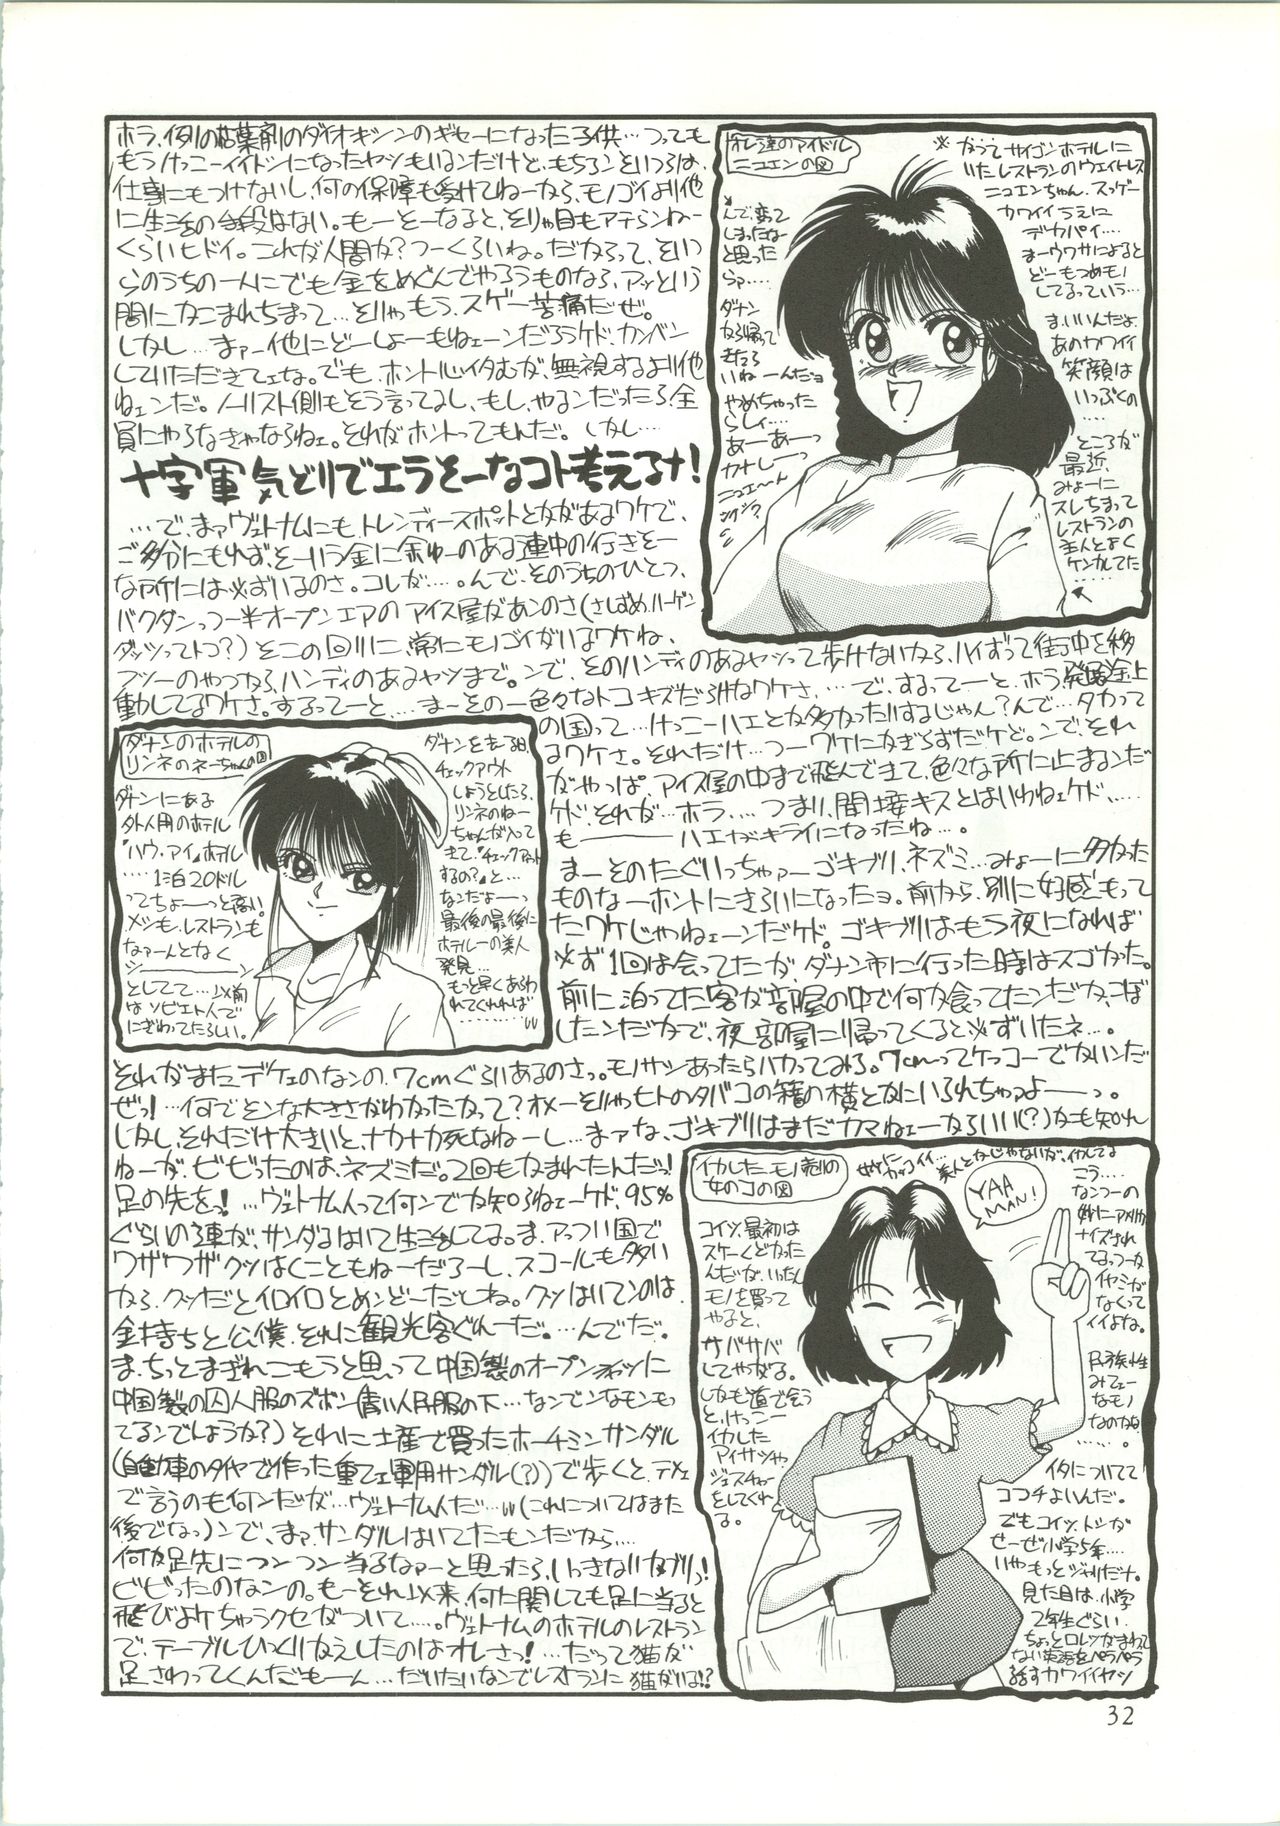 ホラ、例の枯葉剤のダイオキシンのギセーになった子供…つっても
もうけっこーイイトシになったヤツもいるンだけど、もちろンそいつらは、
仕事にもつけないし、何の保障も受けてねーから、モノゴイより他
に生活の手段はない。もーそーなると、そりゃ目もアテらんねー
くらいヒドイ。これが人間か?つーくらいね。だからって、そいつ
らのうちの一人にでも金をめぐんでやろうものなら、アッという
間にかこまれちまって…そりゃもう、スゲー苦痛だぜ。
しかし…まァー他にどーしよーもねェーンだろうケド、カンベン
していただきてェな。でも、ホント心イタむが、無視するより他
ねェンだ。ノリスト側もそう言ってるし、もし、やるンだったら、全
員にやらなきゃならねェ。それがホントってもんだ。しかし…
十字軍気どりでエラそーなコト考えるナ!
…で、まァヴェトナムにも、トレンディースポットとかがあるワケで、
ご多分にもれず、そーいう金に余ゆーのある連中の行きそー
な所には必ずいるのさ。コレが…。んで、そのうちのひとつ、
バクダンっつー半オープンエアのアイス屋があンのさ(さしずめ、ハーゲン
ダッツってトコ?)そこの回りに、常にモノゴイがいるワケね、
フツーのやつから、ハンディのあるヤツまで。ンで、そのハンディのあるヤツって歩けないから、ハイずって街中を移
動してるワケさ。するってーと、…まーその一色々なトコキズだらけなワケさ、…で、するってーと、ホラ、発展途上
の国って…けっこーハエとか多かったりするじゃん?んで…タカって
るワケさ。それだけ…つーワケにかぎらずだケど。ンで、それ
がやっぱ、アイス屋の中まで飛んできて、色々な所に止まるンだ
ケド、それが…ホラ…、つまり、間接キスとはいわねェケド、……
も―――ハエがキライになったね…。
まーそのたぐいっちゃァーゴキブリ、ネズミ…みょーに多かった
ものなーホントにきらいになったョ。前から、別に好感もって
たワケじゃねェーンだケド。ゴキブリはもう夜になれば
必ず1回は会ってたが、ダナン市に行った時はスゴかった。
前に泊ってた客が部屋の中で何か食ってたンだか、こぼ
したンだかで、夜、部屋に帰ってくると必ずいたネ…。
それがまた、デケェのなンの、7cmぐらいあるのさっ。モノサシあったらハカってみろ。7cmってケッコーでかいンだ
ぜっ!…何でそンな大きさがわかったかって?オメーそりゃもトのタバコの箱の横とかにいられちゃっよー―っ。
しかし、それだけ大きいと、ナカナカ死なねーし…まァな、ゴキブリはまだカマねェーからいい(?)かも知れ
ねーが、ビビったのは、ネズミだ。2回もかまれたんだっ!
足の先を!…ヴェトナム人って何ンでか知らねェーケド、95%
ぐらいの連が、サンダルはいて生活してる。ま、アッつい国で
ワザワザクツはくこともねーだろーし、スコールも多い
から、クツだとイロイロとめンどーだしね。クツはいてンのは、
金持ちと公僕、それに観光客ぐれーだ。…んでだ。
ま、ちっとまぎれこもうと思って中国製のオープンシャツに
中国製の囚人服のズボン(青い人民服の下…なンでンなモンもっ
てるンでしょうか?)それに土産で買ったホーチミンサンダル
(自動車のタイヤで作った重てェ軍用サンダル(?))で歩くと、テメェ
で言うのも何ンだが…ヴェトナム人だ…(これについてはまた
後でなっ)ンで、まァサンダルはいてたもンだから……
何か足先にツンツン当るなァーと思ったら、いっきなりカブリっ!
ビビったのなンの。もーそれ以来、何に関しても足に当ると
飛びよけちゃうクセがついて…。ヴェトナムのホテルのレストラン
で、テーブルひっくりかえしたのはオレさっ!…だって猫が
足さわってくんだもーん…だいたいなンでレストランに猫がいる!?
オレ達のアイドル
ニュエンの図
※かつてサイゴンホテルに
いたレストランのウェイトレス
ニュエンちゃん。スッゲー
カワイイうえに
デカパイ…
まーウワサによると
どーもつめモノ
してるっていう…
ま、いいんだョ
あのカワイイ
笑顔は
いっぷくの…
ところが
最近、
みょーに
スレちまって
レストランの
主人とよく
ケンカしてた
んで、変って
しまったなー
と思った
らァ…
ダナン
から帰って
きたら
いねーーんだョ
やめちゃった
らしィ…
あーーあーっ
カナしーーっ
ニュエーん
ダナンのホテルの
リンネのネーちゃんの図
ダナンにある
外人用のホテル
"ハウ・アイ"ホテル
……1泊20ドル
ってちょーっと高い。
メシも、レストランも
なァーんとなく
シーーーーーン
としてて…以前
は、ソビエト人で
にぎわってたらしい。
ダナンを去る日、
チェックアウト
しようとしたら、
リンネのねー
ちゃんが入って
きて、『チェックアウト
するの?』と…
なンだよーっ
最後の最後に
ホテル一の美人
発見…
もっと早くあらわ
れてくれれば
イカしたモノ売りの
女のコの図
ゼッタイにカッコイイ…美人とかじゃないが、イカしてる
YAA
MAN!
コイツ、最初は
スゲーくどかった
んだが、いったん
モノを買って
やると、
サバサバ
してやがる。
しかも道で会う
と、けっこー
イカした
アイサツや
ジェスチャー
をしてくれ
る。
こう……
なンつーの
妙にアメリカ
ナイズされ
てるっつーか
イヤミが
なくって
イイよな。
民族性
みてェー
なモノ
なのかね
……。
イタについてて
ココチよいンだ。
でもコイツ、トシが
せーぜい小学5年…
いやもっとジャリだナ。
見た目は、小学
2年生ぐらい。
ちょっとロレツがまわって
ない英語をペラペラ
話すカワイイヤツ
32